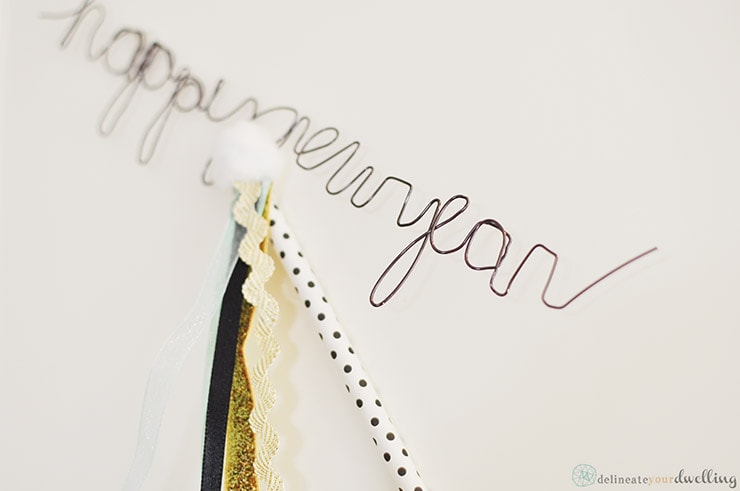 happy new year
delineateyourdwelling